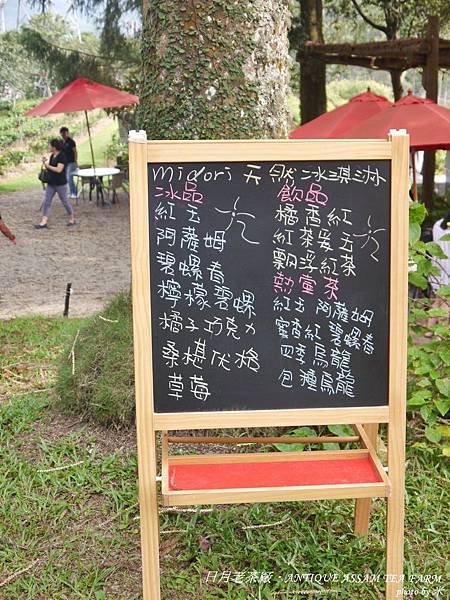 midori 天然冰淇淋
冰品
紅玉
阿薩姆
碧螺春
檸檬碧螺
橘子巧克力
桑椹优格
草莓
飲品
橘香紅
紅茶
飄浮紅茶
熱壺茶
紅玉 阿薩姆
蜜香紅 碧螺春
四季烏龍
包種烏龍
日月老茶廠·ANTIQUE ASSAM TEA FARM
photo by